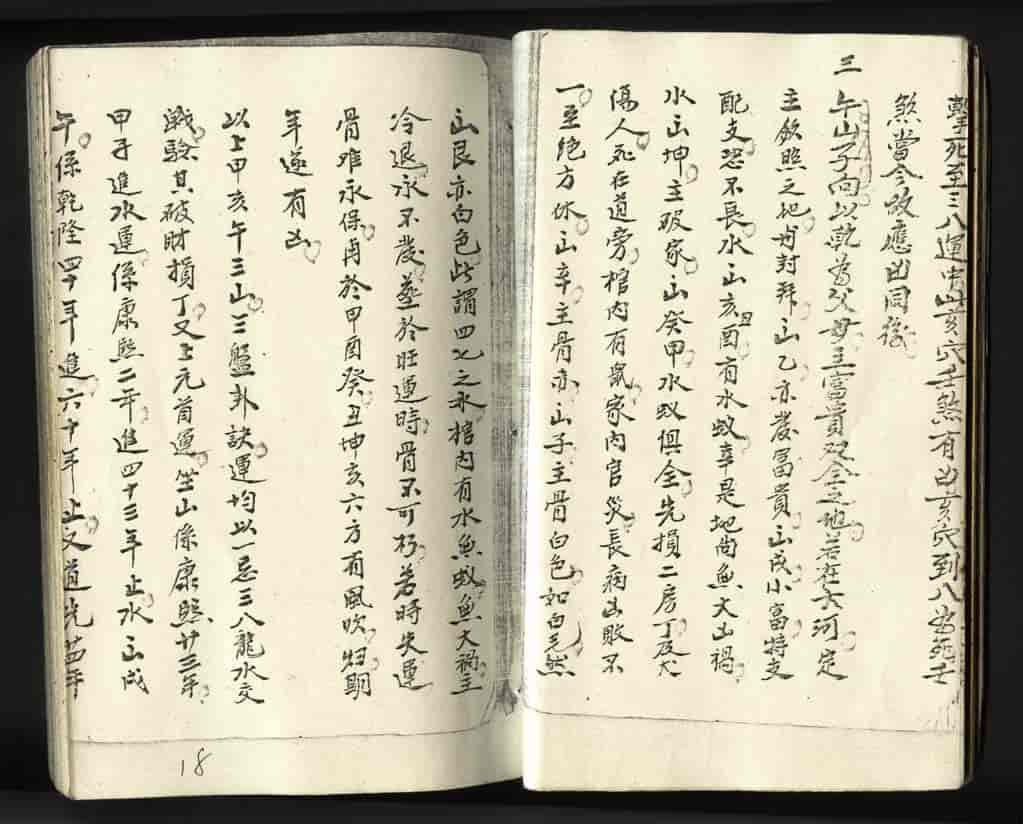 擊死至三八運中此亥穴壬煞有凶亥穴到八為死壬
煞當令故應凶同後
三 午山子向以乾為父母主富貴双全之地若在大河定
主飲照之地有封拜山乙亦發富貴山戌小富特支
配支恐不長水山亥丑酉有水蚁幸是地尚無大凶禍
水山坤主取家山癸甲水蚁俱全先損二房丁及犬
傷人死在道旁棺內有鼠家內官災長病凶敗不
一至絕方休山辛主骨赤山子主骨白色如白毛然
山艮亦白色此謂四七之水棺內有水無蚁無大禍主
冷退永不發葬於旺運時骨不可朽若時失運
骨难永保再於甲酉癸丑坤亥六方有風吹归期
年遂有凶
以上甲亥午三山三盤卦訣運均以一忌三八龍水交
戰驗其破財損丁又上元首運坐山係康熙廿三年
甲子進水運係康熙二年進四十三年止水山戌
午係乾隆四十年進六十年止又道光廿四年
18